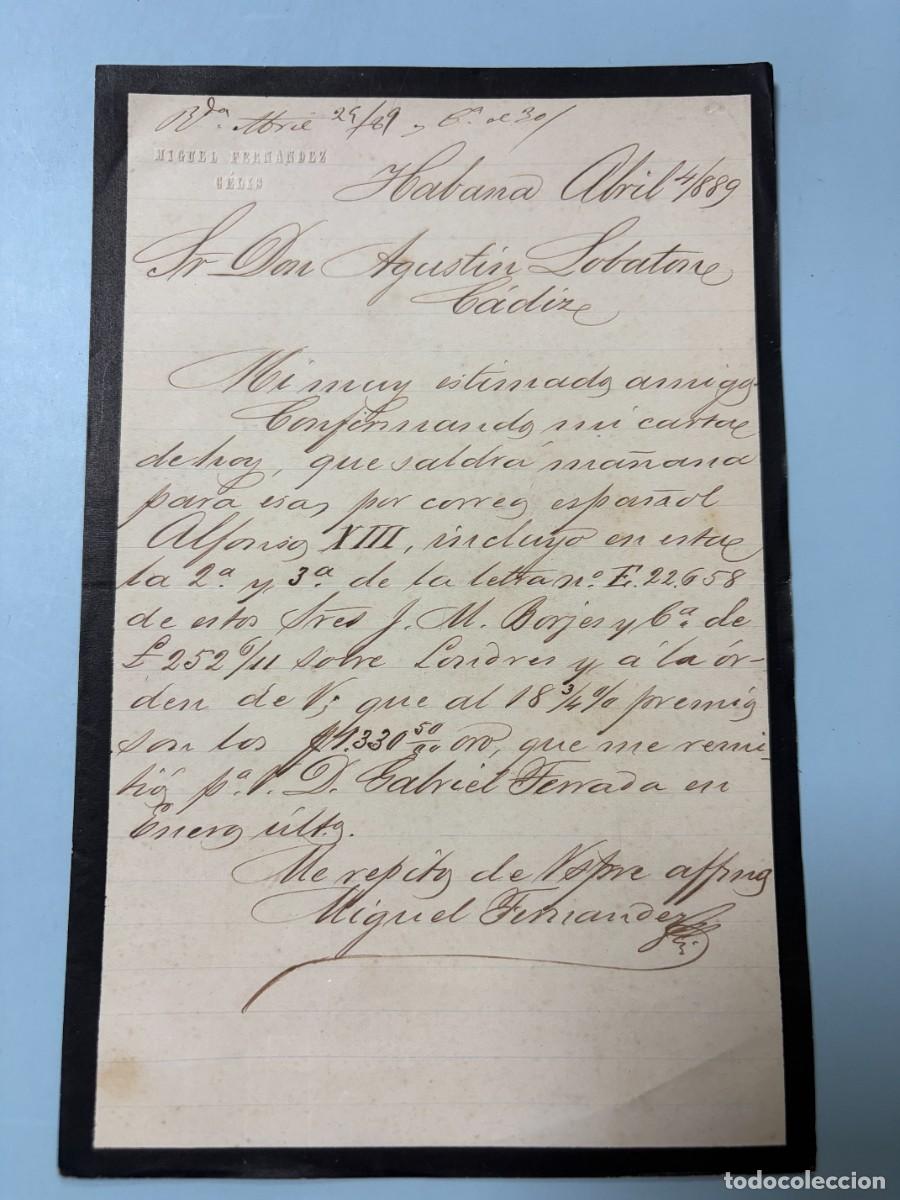 Rda. Abril 29/89 y Ca. el 30/
MIGUEL FERNANDEZ
CÉLIS
Habana Abril 4/889
Sr Don Agustin Lobaton
Cádiz
Mi muy estimado amigo
Confirmando mi carta
de hoy, que saldrá mañana
para esa, por correo español
Alfonso XIII, incluyo en esta
la 2ª y 3ª de la letra nº E.22.658
de estos Sres J. M. Borjes y Cª de
£252"6/11 sobre Londres y á la ór-
den de V; que al 18 3/4 % premio
son los $1.330 50/00 oro, que me remi-
tió pª. D. Gabriel Ferrada en
Enero últo.
Me repito de V spre affmo
Miguel Fernandez
todocoleccion